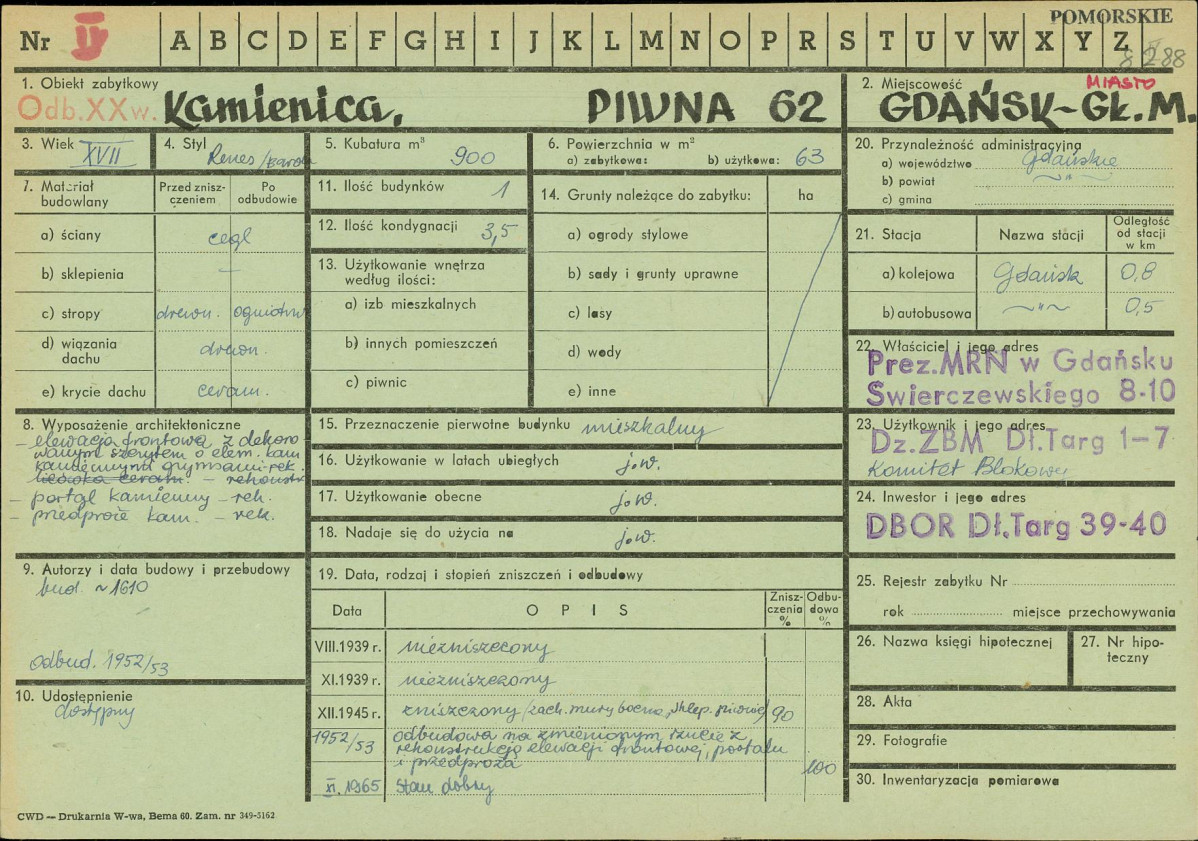 POMORSKIE
Nr IV A B C D E F G H I J K L M N O P R S T U V W X Y Z
8288
1. Obiekt zabytkowy
Odb.XXw. Kamienica, PIWNA 62
2. Miejscowość MIASTO
GDAŃSK-GŁ.M.
3. Wiek XVII
4. Styl Renes/barok
5. Kubatura m³ 900
6. Powierzchnia w m²
a) zabytkowa: b) użytkowa: 63
7. Materiał budowlany
Przed zniszczeniem
Po odbudowie
a) ściany cegl
b) sklepienia —
c) stropy drewn. ogniotrw
d) wiązania dachu drewn.
e) krycie dachu ceram.
8. Wyposażenie architektoniczne
- elewacja frontowa z dekoro
wanym szczytem o elem. kam
kamiennymi gzymsami-rek.
licówka ceram. - rekonstr
- portal kamienny - rek.
- przedproże kam. - rek.
9. Autorzy i data budowy i przebudowy
bud. ~1610
odbud. 1952/53
10. Udostępnienie
dostępny
11. Ilość budynków 1
12. Ilość kondygnacji 3,5
13. Użytkowanie wnętrza
według ilości:
a) izb mieszkalnych
b) innych pomieszczeń
c) piwnic
14. Grunty należące do zabytku: ha
a) ogrody stylowe
b) sady i grunty uprawne
c) lasy
d) wody
e) inne
15. Przeznaczenie pierwotne budynku mieszkalny
16. Użytkowanie w latach ubiegłych j.w.
17. Użytkowanie obecne j.w.
18. Nadaje się do użycia na j.w.
19. Data, rodzaj i stopień zniszczeń i odbudowy
Data OPIS Zniszczenia % Odbudowa %
VIII.1939 r. niezniszczony
XI.1939 r. niezniszczony
XII.1945 r. zniszczony/zach. mury boczne, sklep. piwnic/ 90
1952/53 odbudowa na zmienionym rzucie z
rekonstrukcją elewacji frontowej, portalu
i przedproża 100
XI.1965 stan dobry
20. Przynależność administracyjna
a) województwo Gdańskie
b) powiat ~ " ~
c) gmina
21. Stacja Nazwa stacji Odległość od stacji w km
a) kolejowa Gdańsk 0,8
b) autobusowa ~ " ~ 0,5
22. Właściciel i jego adres
Prez.MRN w Gdańsku
Swierczewskiego 8-10
23. Użytkownik i jego adres
Dz.ZBM Dł.Targ 1-7
Komitet Blokowy
24. Inwestor i jego adres
DBOR Dł.Targ 39-40
25. Rejestr zabytku Nr
rok miejsce przechowywania
26. Nazwa księgi hipotecznej
27. Nr hipoteczny
28. Akta
29. Fotografie
30. Inwentaryzacja pomiarowa
CWD — Drukarnia W-wa, Bema 60. Zam. nr 349-5162